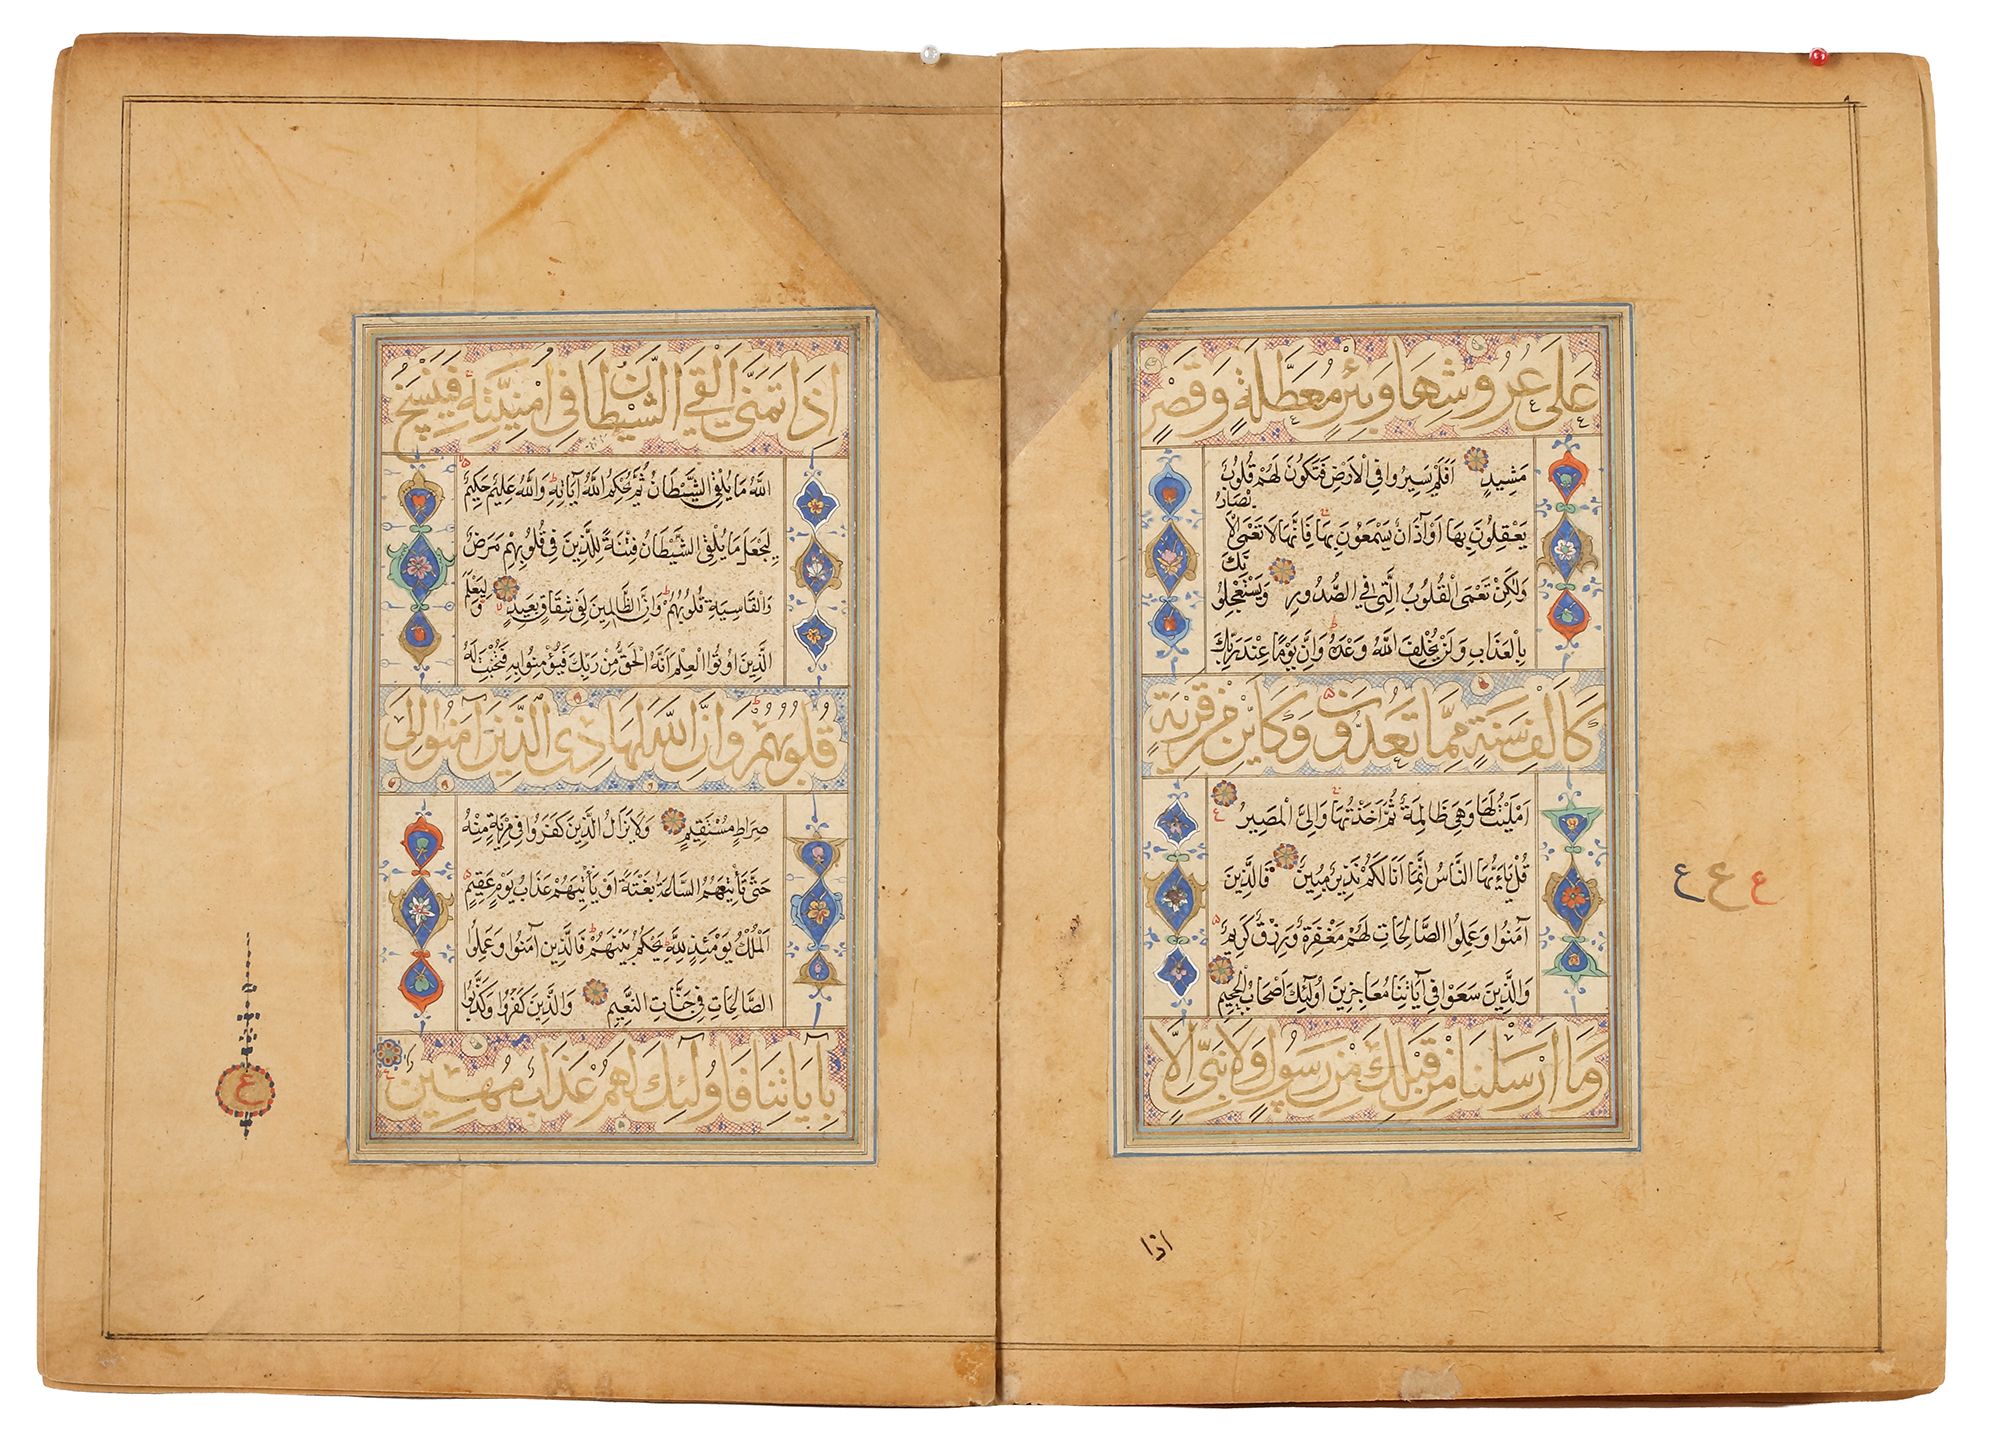 عَلَى عُرُوشِهَا وَبِئْرٍ مُعَطَّلَةٍ وَقَصْرٍ
مَشِيدٍ اَفَلَمْ يَسِيرُوا فِي الْاَرْضِ فَتَكُونَ لَهُمْ قُلُوبٌ
يَعْقِلُونَ بِهَا اَوْ آذَانٌ يَسْمَعُونَ بِهَا فَاِنَّهَا لَا تَعْمَى الْاَبْصَارُ
وَلٰكِنْ تَعْمَى الْقُلُوبُ الَّتِي فِي الصُّدُورِ وَيَسْتَعْجِلُونَكَ
بِالْعَذَابِ وَلَنْ يُخْلِفَ اللّٰهُ وَعْدَهُ وَاِنَّ يَوْمًا عِنْدَ رَبِّكَ
كَاَلْفِ سَنَةٍ مِمَّا تَعُدُّونَ وَكَاَيِّنْ مِنْ قَرْيَةٍ
اَمْلَيْتُ لَهَا وَهِيَ ظَالِمَةٌ ثُمَّ اَخَذْتُهَا وَاِلَيَّ الْمَصِيرُ
قُلْ يَاءَيُّهَا النَّاسُ اِنَّمَا اَنَا لَكُمْ نَذِيرٌ مُبِينٌ فَالَّذِينَ
آمَنُوا وَعَمِلُوا الصَّالِحَاتِ لَهُمْ مَغْفِرَةٌ وَرِزْقٌ كَرِيمٌ
وَالَّذِينَ سَعَوْا فِي آيَاتِنَا مُعَاجِزِينَ اُولٰئِكَ اَصْحَابُ الْجَحِيمِ
وَمَا اَرْسَلْنَا مِنْ قَبْلِكَ مِنْ رَسُولٍ وَلَا نَبِيٍّ اِلَّا
ع ع ع
اذا
اِذَا تَمَنَّى اَلْقَى الشَّيْطَانُ فِي اُمْنِيَّتِهِ فَيَنْسَخُ
اللّٰهُ مَا يُلْقِي الشَّيْطَانُ ثُمَّ يُحْكِمُ اللّٰهُ آيَاتِهِ وَاللّٰهُ عَلِيمٌ حَكِيمٌ
لِيَجْعَلَ مَا يُلْقِي الشَّيْطَانُ فِتْنَةً لِلَّذِينَ فِي قُلُوبِهِمْ مَرَضٌ
وَالْقَاسِيَةِ قُلُوبُهُمْ وَاِنَّ الظَّالِمِينَ لَفِي شِقَاقٍ بَعِيدٍ وَلِيَعْلَمَ
الَّذِينَ اُوتُوا الْعِلْمَ اَنَّهُ الْحَقُّ مِنْ رَبِّكَ فَيُؤْمِنُوا بِهِ فَتُخْبِتَ لَهُ
قُلُوبُهُمْ وَاِنَّ اللّٰهَ لَهَادِي الَّذِينَ آمَنُوا اِلَى
صِرَاطٍ مُسْتَقِيمٍ وَلَا يَزَالُ الَّذِينَ كَفَرُوا فِي مِرْيَةٍ مِنْهُ
حَتَّى تَأْتِيَهُمُ السَّاعَةُ بَغْتَةً اَوْ يَأْتِيَهُمْ عَذَابُ يَوْمٍ عَقِيمٍ
اَلْمُلْكُ يَوْمَئِذٍ لِلّٰهِ يَحْكُمُ بَيْنَهُمْ فَالَّذِينَ آمَنُوا وَعَمِلُوا
الصَّالِحَاتِ فِي جَنَّاتِ النَّعِيمِ وَالَّذِينَ كَفَرُوا وَكَذَّبُوا
بِآيَاتِنَا فَاُولٰئِكَ لَهُمْ عَذَابٌ مُهِينٌ
ع